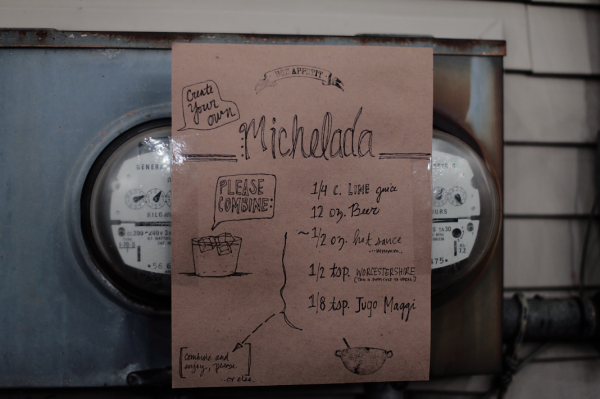 BON APPETIT
Create
Your
own
Michelada
PLEASE
COMBINE:
1/4 c. LIME juice
12 oz. Beer
~1/2 oz. hot sauce
1/2 tsp. WORCESTERSHIRE
1/8 tsp. Jugo Maggi
[combine and
enjoy, please.]
...or else.
GENERA
KILO
200